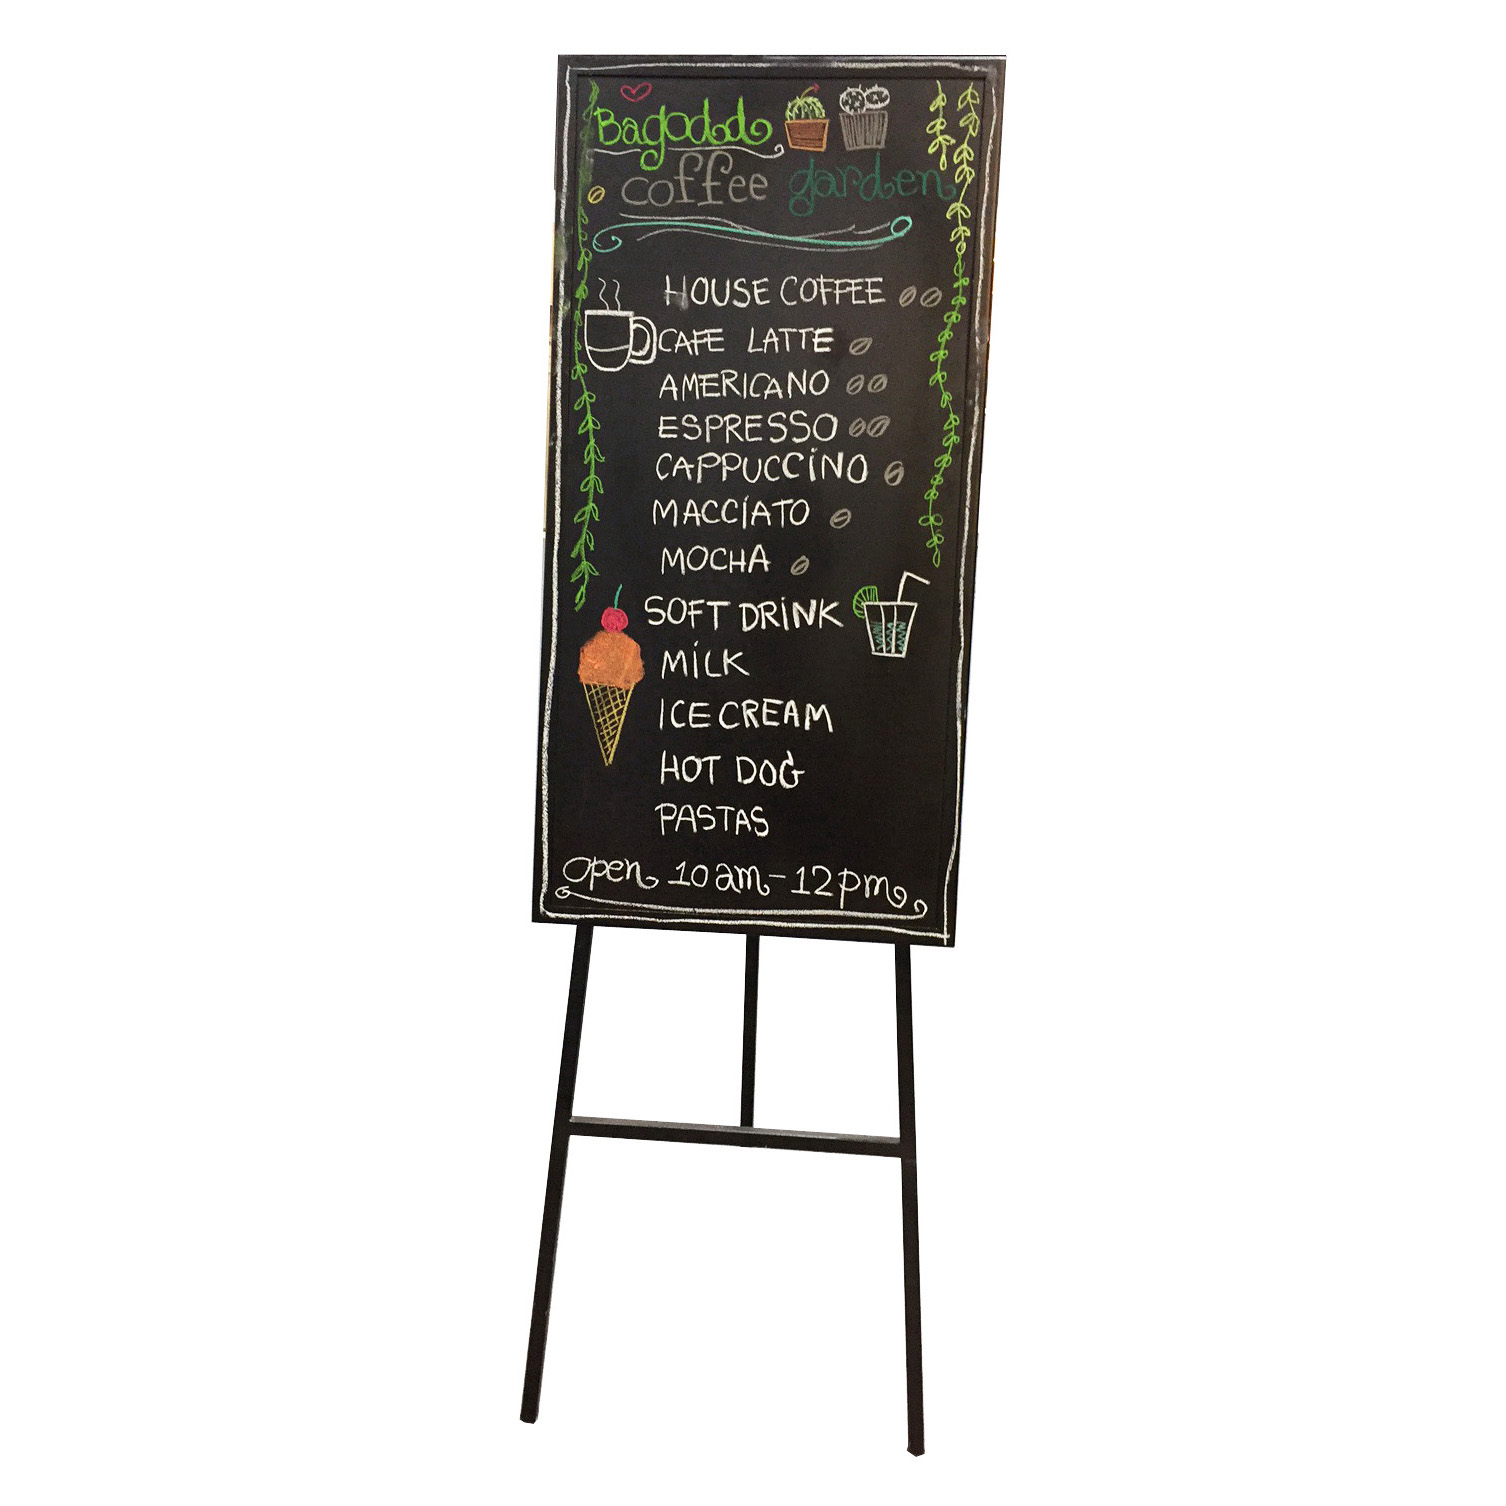 Bagodd
coffee garden
HOUSE COFFEE
CAFE LATTE
AMERICANO
ESPRESSO
CAPPUCCiNO
MACCiATO
MOCHA
SOFT DRiNK
MiLK
ICE CREAM
HOT DOG
PASTAS
Open 10am-12pm